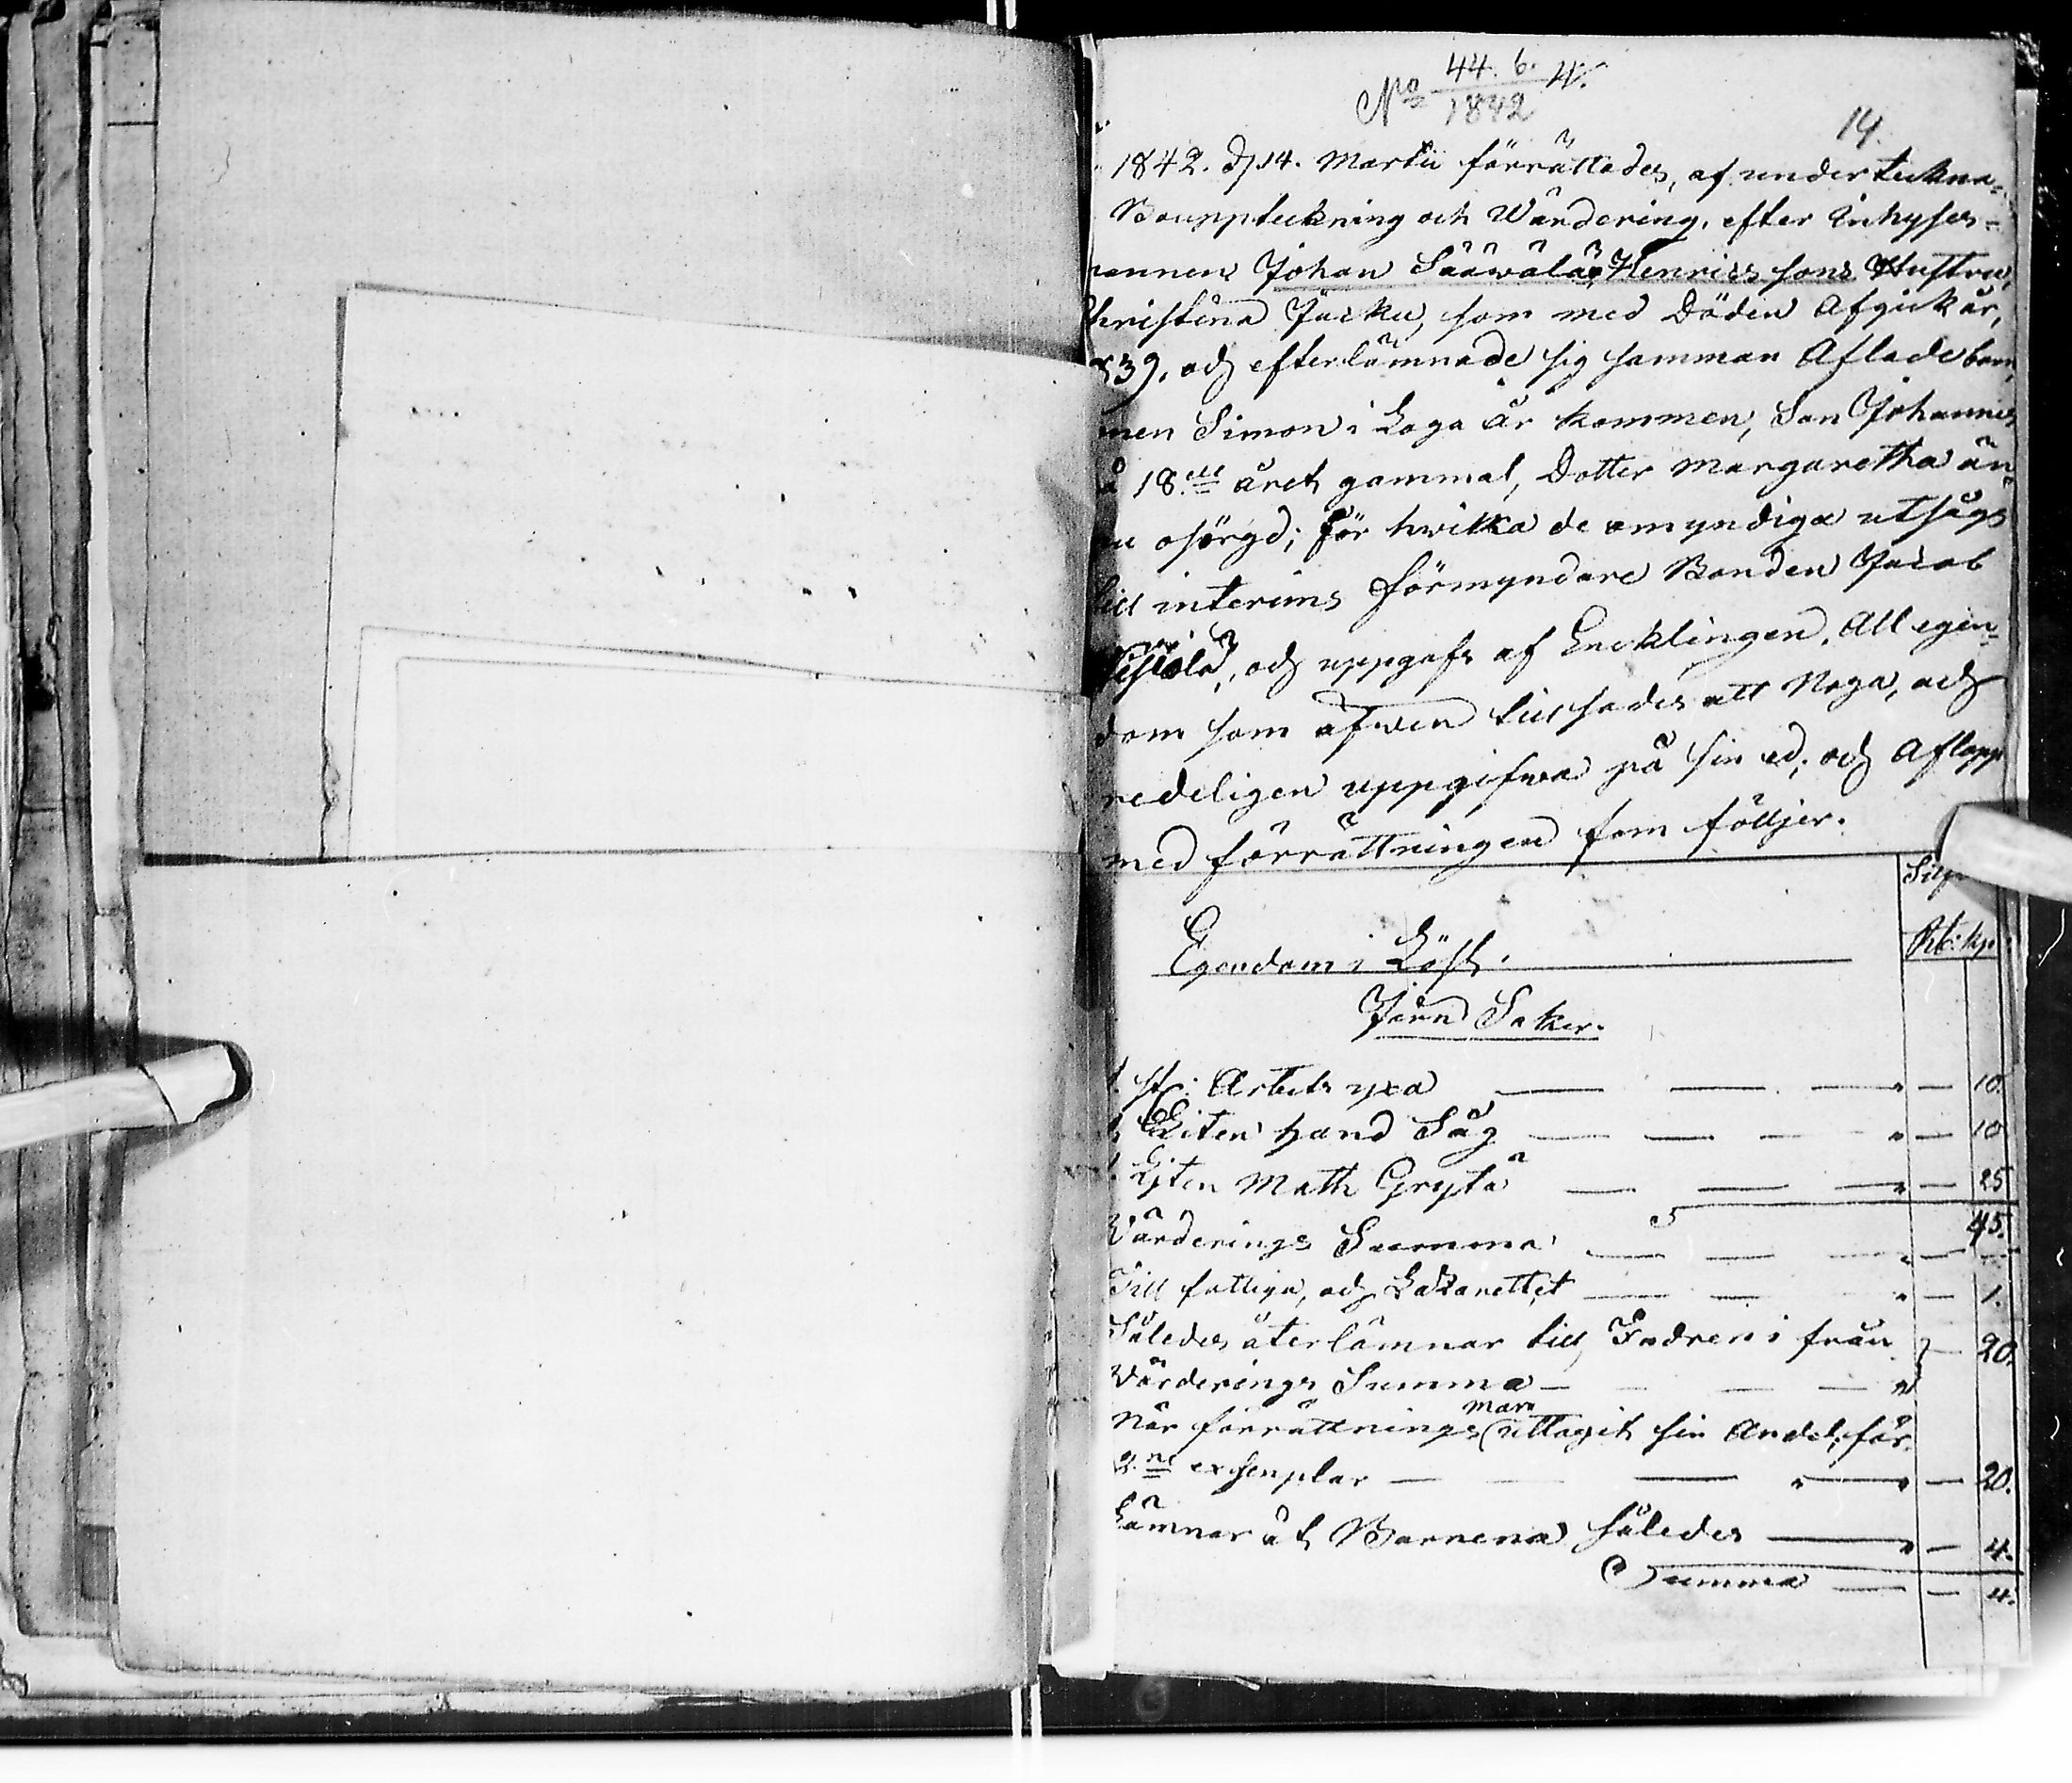 No 44. b. 4.
1842
14.
1842. d 14. Martii förrättades, af underteckna-
Bouppteckning och Wärdering, efter Inhyses-
mannen Johan Sääwälä, Henricssons Hustru,
Christina Jacku, som med Döden Afgick år,
1839, och efterlämnade sig samman Aflade barn,
men Simon i Laga år kommen, Son Johannes
på 18de året gammal, Dotter Margaretha än-
nu osörgd; för hwilka de omyndiga utsågs
till interims Förmyndare Bonden Jacob
och uppgafs af Encklingen, All egen-
dom som äfwen tillsades att Noga, och
redeligen uppgifwa på sin ed, och Aflopp
med förrättningen som följer.
Silf
Rb: kp
Egendom i Löst.
Järnd Saker.
1. st: Arbets yxa — — — " — 10.
1 Liten hand Såg — — — " — 10
1. Liten Math Gryta — — — " — 25
Wärderings Summa — — — " — 45.
Till fattiga, och Lazarettet — — " — 1.
Således återlämnar till Fadren i från
Wärderings Summa — — — — " — 20.
När förrättnings man uttagit sin Andel, för
2ne exsemplar — — — " — 20.
Lämnar åt Barnena således — " — 4.
Summa — — 4.